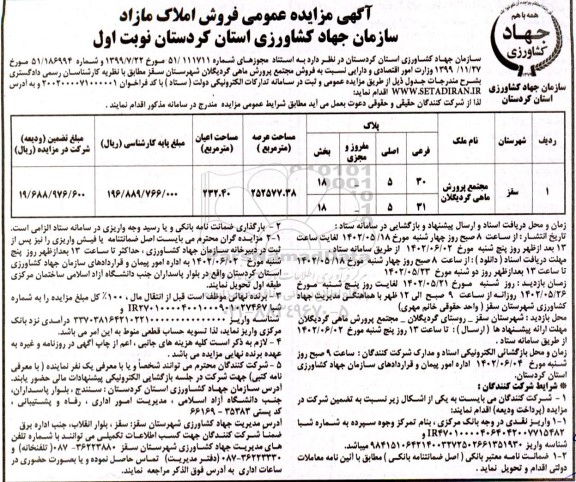 همه با هم
جهاد
کشاورزی
سازمان جهاد کشاورزی
استان کردستان
آگهی مزایده عمومی فروش املاک مازاد
سازمان جهاد کشاورزی استان کردستان نوبت اول
سازمان جهاد کشاورزی استان کردستان در نظر دارد به استناد مجوزهای شماره ۵۱/۱۱۱۷۱۱ مورخ ۱۳۹۹/۷/۲۲ و شماره ۵۱/۱۸۶۹۹۴ مورخ
۱۳۹۹/۱۱/۲۷ وزارت امور اقتصادی و دارایی نسبت به فروش مجتمع پرورش ماهی گردیگلان شهرستان سقز مطابق با نظریه کارشناسان رسمی دادگستری
بشرح مندرجات جدول ذیل از طریق مزایده عمومی و ثبت در سامانه تدارکات الکترونیکی دولت ( ستاد ) با کد فراخوان ۲۰۰۲۰۰۰۰۷۱۰۰۰۰۰۱ و به آدرس
WWW.SETADIRAN.IR اقدام نماید:
لذا از شرکت کنندگان حقیقی و حقوقی دعوت بعمل می آید مطابق شرایط عمومی مزایده مندرج در سامانه مذکور اقدام نمایند .
ردیف شهرستان نام ملک پلاک مساحت عرصه (مترمربع) مساحت اعیان (مترمربع) مبلغ پایه کارشناسی (ریال) مبلغ تضمین (ودیعه) شرکت در مزایده (ریال)
فرعی اصلی مفروز و مجزی بخش
۱ سقز مجتمع پرورش ماهی گردیگلان ۳۰ ۵ _ ۱۸ ۲۵۲۵۷۷.۳۸ ۲۳۲.۴۰ ۱۹۶/۸۸۹/۷۶۶/۰۰۰ ۱۹/۶۸۸/۹۷۶/۶۰۰
۳۱ ۵ - ۱۸
زمان و محل دریافت اسناد و ارسال پیشنهاد و بازگشایی در سامانه ستاد :
تاریخ انتشار : از ساعت ۸ صبح روز چهار شنبه مورخ ۱۴۰۲/۰۵/۱۸ لغایت ساعت
۱۳ بعد ازظهر روز پنج شنبه مورخ ۱۴۰۲/۰۶/۰۲ از طریق سامانه ستاد .
مهلت دریافت اسناد ( دانلود ) : از ساعت ۸ صبح روز چهار شنبه مورخ ۱۴۰۲/۰۵/۱۸
تا ساعت ۱۳ بعدازظهر روز دو شنبه مورخ ۱۴۰۲/۰۵/۲۳
زمان بازدید : روز شنبه مورخ ۱۴۰۲/۰۵/۲۱ لغایت روز پنج شنبه مورخ
۱۴۰۲/۰۵/۲۶ روزانه از ساعت ۹ صبح الی ۱۲ ظهر با هماهنگی مدیریت جهاد
کشاورزی شهرستان سقز ( واحد حقوقی خانم مهری)
محل بازدید : شهرستان سقز _ روستای گردیگلان _ مجتمع پرورش ماهی گردیگلان
مهلت ارائه پیشنهاد ها ( ارسال ) : تا ساعت ۱۳ روز پنج شنبه مورخ ۱۴۰۲/۰۶/۰۲
از طریق سامانه ستاد .
زمان و محل بازگشائی الکترونیکی اسناد و مدارک شرکت کنندگان : ساعت ۹ صبح روز
شنبه مورخ ۱۴۰۲/۰۶/۰۴ اداره امور پیمان و قراردادهای سازمان جهاد کشاورزی
استان کردستان.
* شرایط شرکت کنندگان :
۱ - شرکت کنندگان می بایست به یکی از اشکال زیر نسبت به تضمین شرکت در
مزایده (پرداخت ودیعه) اقدام نمایند:
۱-۱ واریز نقدی در وجه بانک مرکزی ، بنام تمرکز وجوه سپرده به شماره شبا
شناسه واریز
۱-۲ ضمانت نامه معتبر بانکی ( اصل ضمانتنامه بانکی ) مطابق با آئین نامه معاملات
دولتی اقدام و تحویل نماید .
۲ - بارگذاری ضمانت نامه بانکی و یا رسید وجه واریزی در سامانه ستاد الزامی است.
۲-۱ مزایده گران محترم می بایست اصل ضمانتنامه یا فیش واریزی را نیز پس از
ثبت در دبیرخانه سازمان جهاد کشاورزی ، حداکثر تا ساعت ۱۳ بعدازظهر روز پنج
شنبه مورخ ۱۴۰۲/۰۶/۰۲ به اداره امور پیمان و قراردادهای سازمان جهاد کشاورزی
استان کردستان واقع در بلوار پاسداران جنب دانشگاه آزاد اسلامی ساختمان مرکزی
طبقه اول تحویل نمایند.
۳ - برنده نهائی موظف است قبل از انتقال مال ، ۱۰۰٪ کل مبلغ مزایده را به شماره
شبا و
شناسه واریز درآمدی نزد بانک
مرکزی واریز نماید، لذا تسویه حساب قطعی منوط به این امر می باشد.
۴ - لازم به ذکر است کلیه هزینه های جانبی ، اعم از چاپ آگهی در روزنامه و غیره به
عهده برنده نهایی مزایده می باشد.
۵ - شرکت کنندگان محترم می توانند شخصاً و یا با معرفی یک نفر نماینده ( با معرفی
نامه کتبی) جهت شرکت در جلسه بازگشایی الکترونیکی پیشنهادات مالی حضور یابند.
آدرس سازمان جهاد کشاورزی استان کردستان : سنندج ، بلوار پاسداران،
جنب دانشگاه آزاد اسلامی ، مدیریت امور اداری ، رفاه و پشتیبانی ،
کد پستی ۳۵۳۸۳ - ۶۶۱۶۹
آدرس مدیریت جهاد کشاورزی شهرستان سقز: سقز ، بلوار انقلاب، جنب اداره برق
ضمناً شرکت کنندگان جهت کسب اطلاعات تکمیلی می توانند با شماره تلفن
های مدیریت جهاد کشاورزی شهرستان سقز ۳۶۲۲۳۸۸۰-۰۸۷ (تلفنخانه) و
۳۶۲۲۳۳۳۰-۰۸۷ (دفتر مدیریت) تماس حاصل نموده و یا بصورت حضوری در
ساعات اداری به آدرس فوق الذکر مراجعه نمایند.